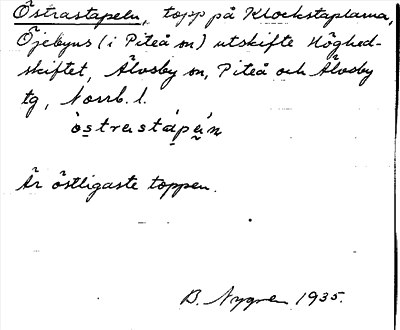 Östrastapeln, topp på Klockstaplarna,
Öjebyns (i Piteå sn) utskifte Höghed-
skiftet, Älvsby sn, Piteå och Älvsby
tg, Norrb. l.
östrastápǝ́n
Är östligaste toppen.
B. Nygren 1935.